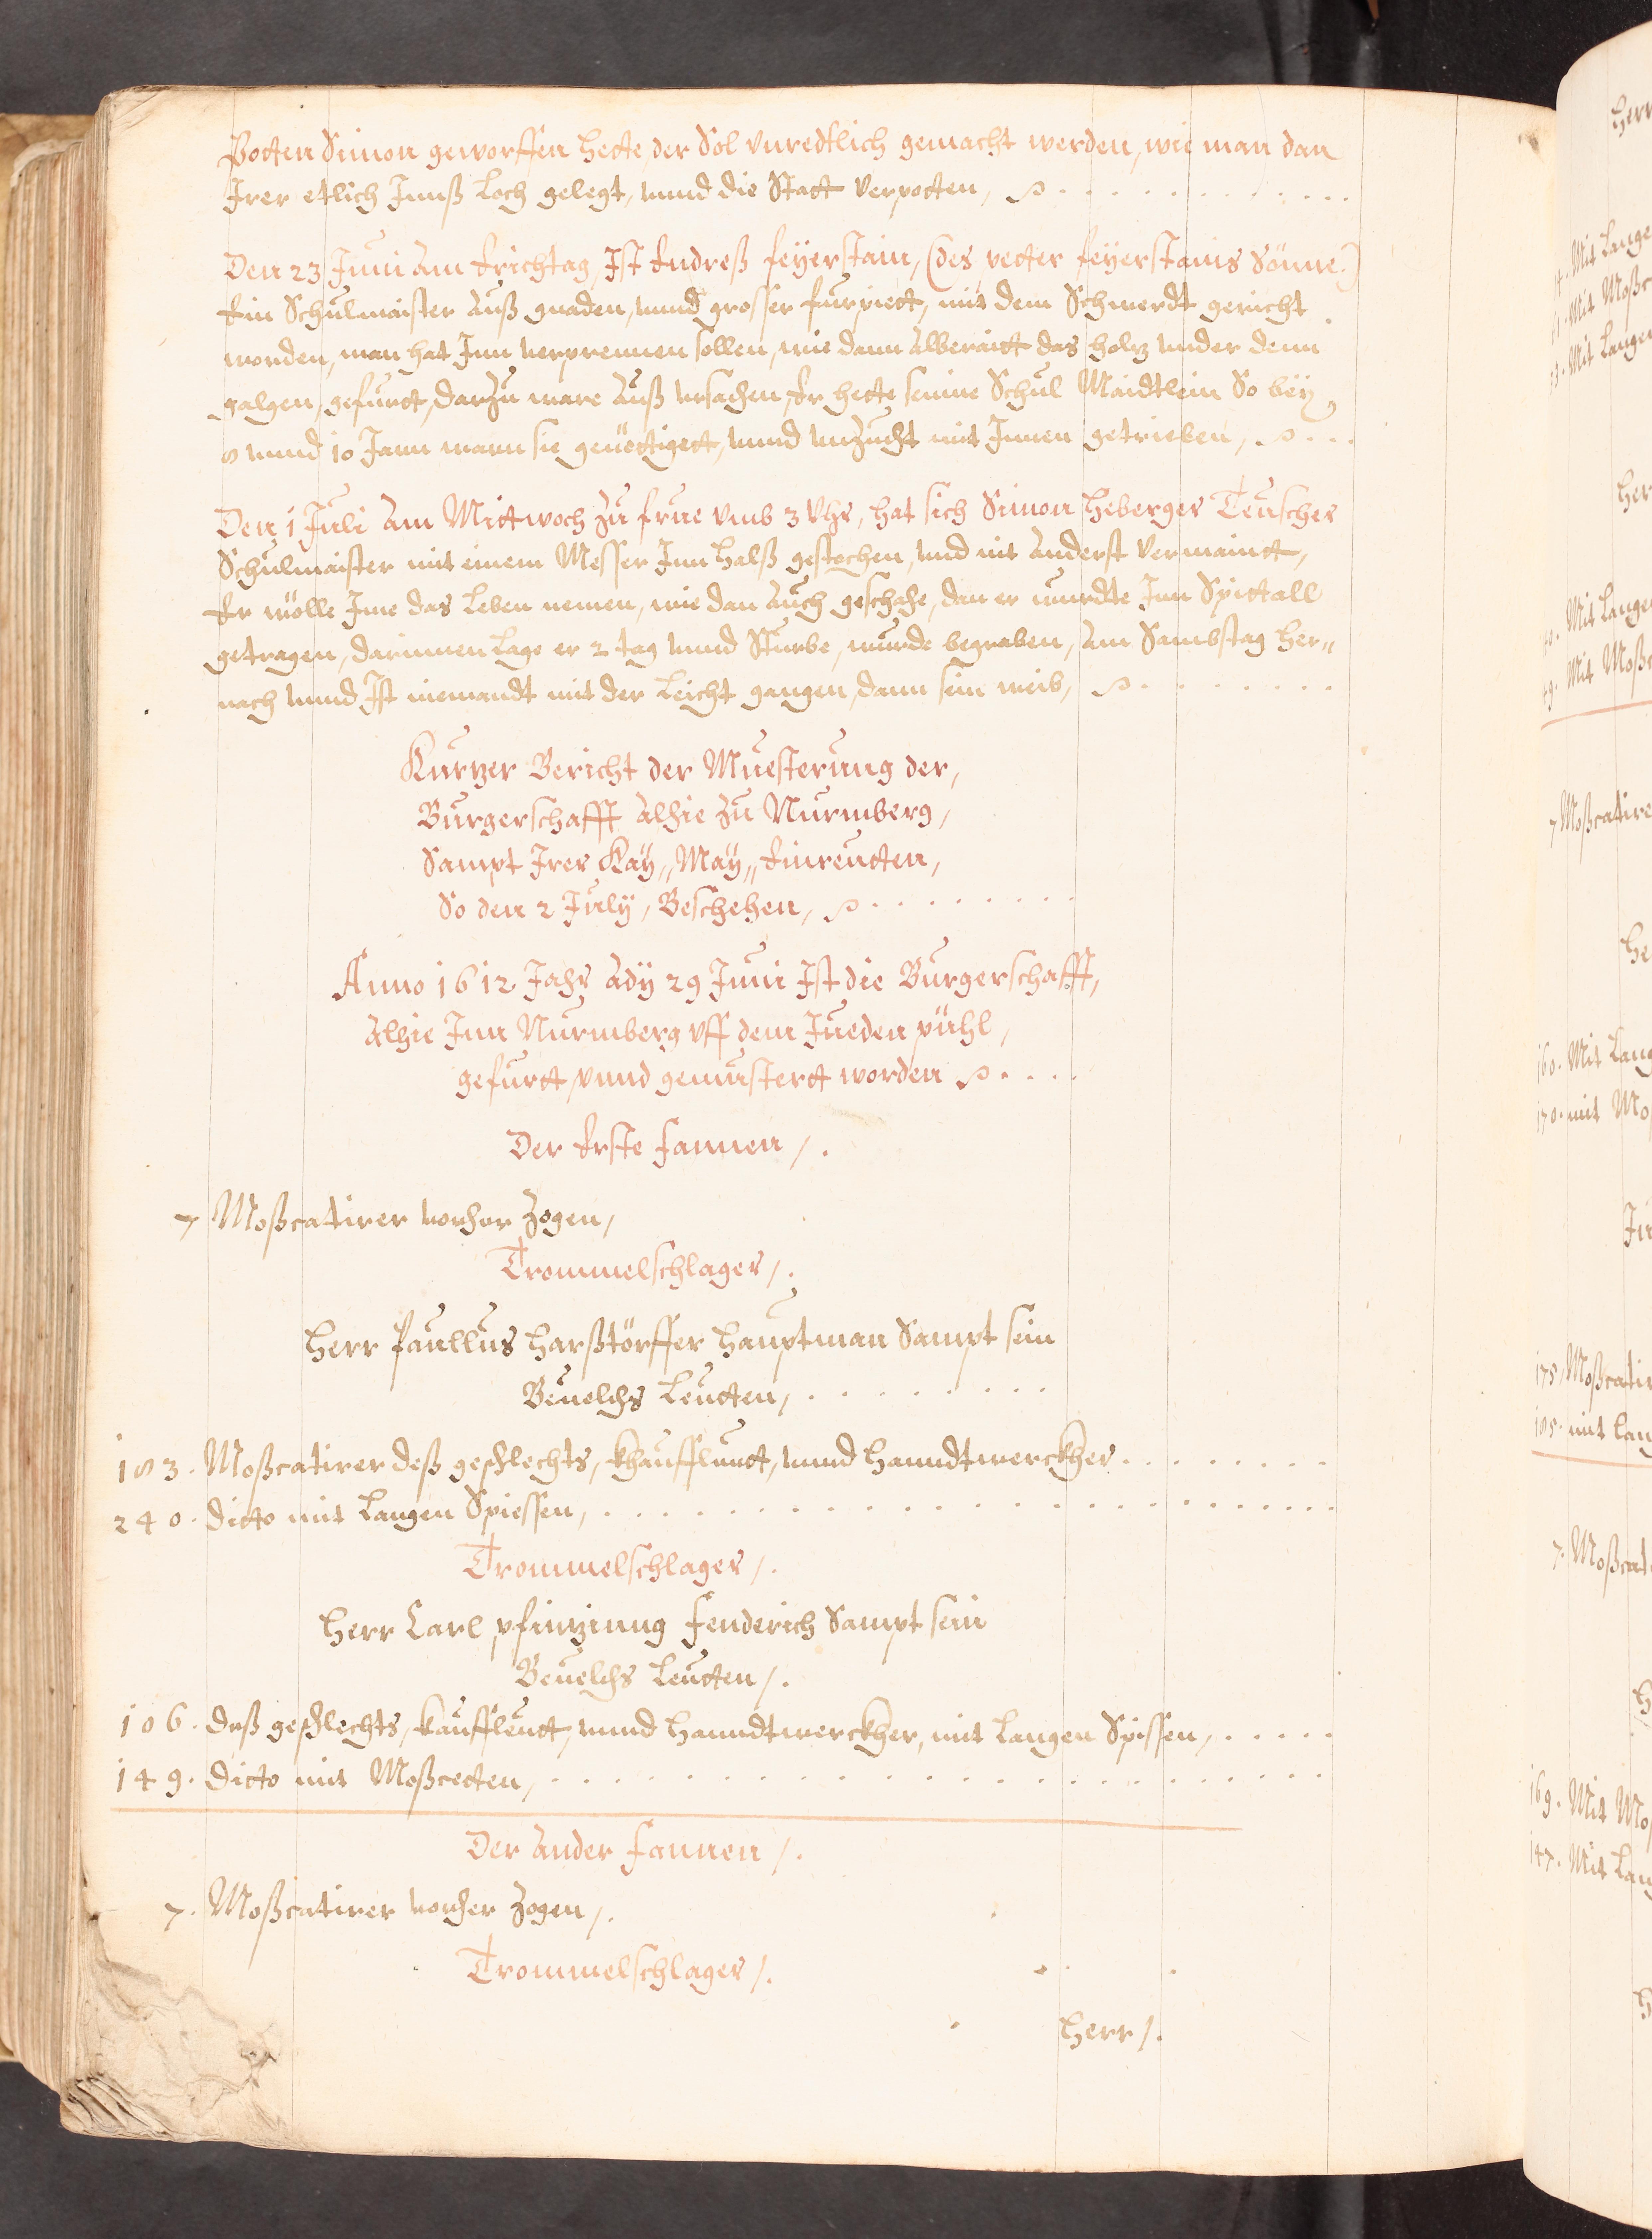 Potten Simon geworffen hette, der Sol vnredtlich gemacht werden, wie man dan
Irer etlich Innß Loch gelegt, vnnd die Statt verpotten,
Den 23 Juni Am Erichtag, Ist Endreß Feyerstain, (des vetter Feyerstains Sönne.)
Ein Schulmaister Auß gnaden, vnnd grosser Furpiett, mit dem Schwerdt gericht
worden, man hat Inn verprennen sollen, wie dann Alberaitt das holtz vnder denn
galgen, gefurtt, darzu ware Auß vrsachen, Er hette seine Schul Maidtlein So bey
8 vnnd 10 Jarn warn sie genöttigett, vnnd vnzucht mit Innen getrieben,
Den 1 Juli Am Mittwoch Zu frue vmb 3 Vhr, hat sich Simon Heberger Teuscher
Schulmaister mit einem Messer Inn Halß gestochen, vnd nit Anderst vermaintt,
Er wölle Ime das Leben nemen, wie dan Auch geschahe, dan er wurdte Inn Spittall
getragen, darinnen Lage er 2 tag vnnd Sturbe, wurde begraben, Am Sambstag her„
nach vnnd Ist niemandt mit der Leicht gangen, dann sein weib,
Kurtzer Bericht der Muesterung der,
Burgerschafft Alhie Zu Nurmberg,
Sampt Irer Kay„ May„ Einreutten,
So den 2 July, Beschehen,
Anno 1612 Jahr Ady 29 Juni Ist die Burgerschafft,
Alhie Inn Nurmberg vff dem Jueden pühl,
gefurtt, vnnd gemustertt worden
Der Erste Fannen /.
7 Moßcatirer vorher Zogen,
Trommelschlager /.
Herr Paullus Harßtörffer Hauptman Sampt sein
Beuelchs Leutten,
183. Moßcatirer deß geschlechts, Khauffleutt, vnnd Hanndtwerckher
240. Ditto mit Langen Spiessen,
Trommelschlager /.
Herr Carl Pfintzinng Fenderich Sampt sein
Beuelchs Leutten /.
106. Deß geschlechts, Kauffleutt, vnnd Hanndtwerckher, mit Langen Spissen,
149. Ditto mit Moßcetten,
Der Ander Fannen /.
7. Moßcatirer vorher Zogen /.
Trommelschlager /.
Herr /.